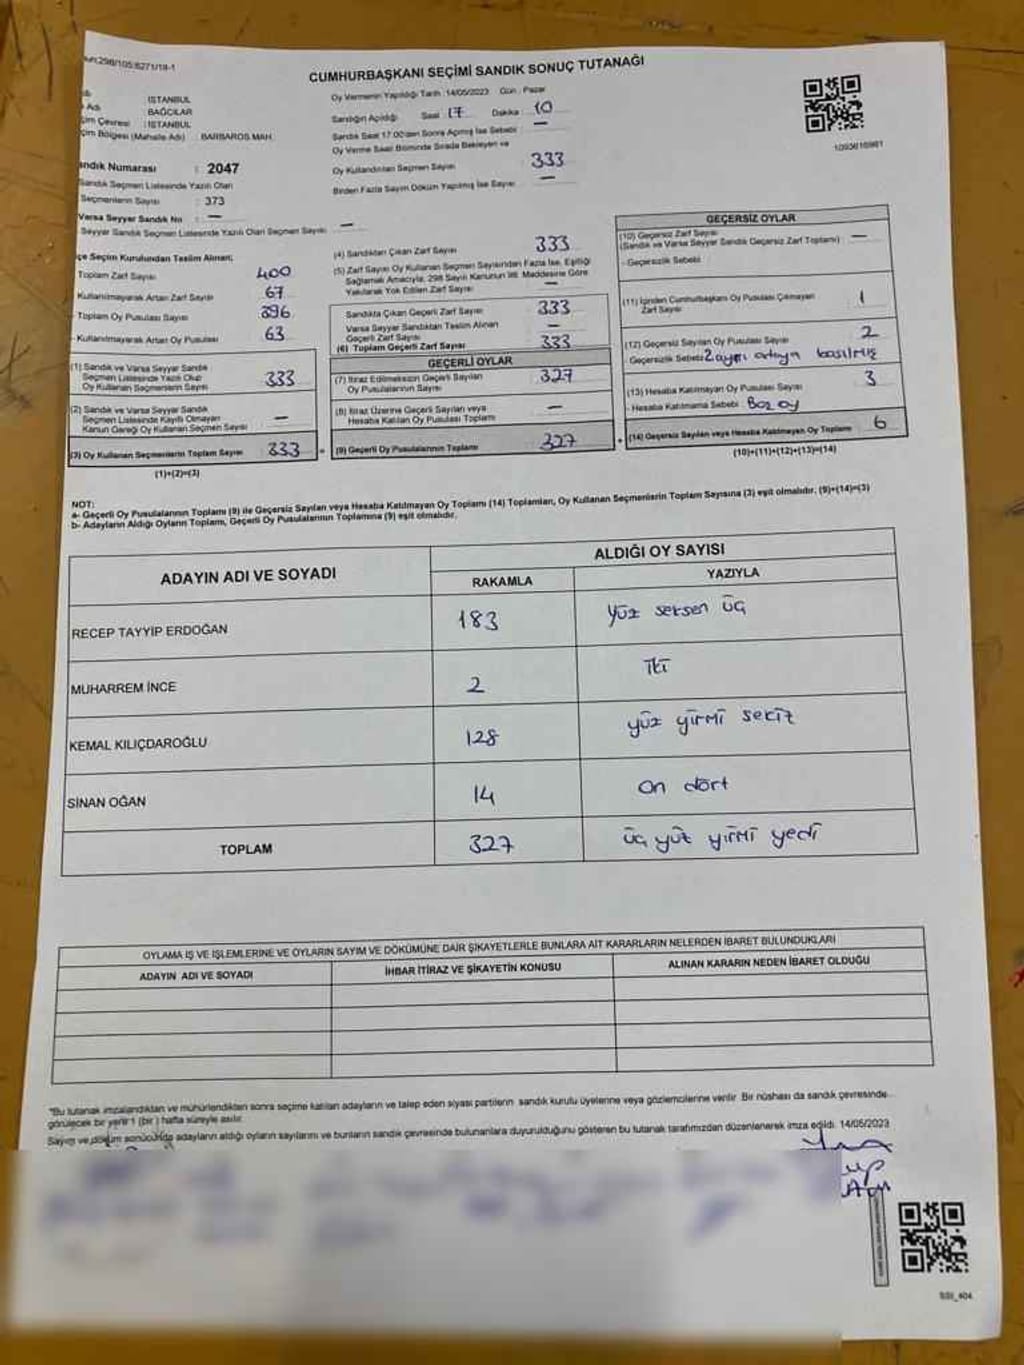 CUMHURBAŞKANI SEÇİMİ SANDIK SONUÇ TUTANAĞI
İSTANBUL
Adı BAĞCILAR
Çevresi : İSTANBUL
Bölgesi (Mahalle Adı) BARBAROS MAH.
Sandık Numarası : 2047
Sandık Seçmen Listesinde Yazılı Olan
Seçmenlerin Sayısı : 373
Varsa Seyyar Sandık No : —
Seyyar Sandık Seçmen Listesinde Yazılı Olan Seçmen Sayısı —
Oy Vermenin Yapıldığı Tarih : 14/05/2023 Gün : Pazar
Sandığın Açıldığı Saat 17 Dakika 10
Sandık Saat 17.00'den Sonra Açılmış İse Sebebi : —
Oy Verme Saati Bitiminde Sırada Bekleyen ve
Oy Kullandırılan Seçmen Sayısı 333
Birden Fazla Sayım Döküm Yapılmış İse Sayısı —
İlçe Seçim Kurulundan Teslim Alınan;
Toplam Zarf Sayısı 400
Kullanılmayarak Artan Zarf Sayısı 67
- Toplam Oy Pusulası Sayısı 396
- Kullanılmayarak Artan Oy Pusulası 63
(1) Sandık ve Varsa Seyyar Sandık
Seçmen Listesinde Yazılı Olup
Oy Kullanan Seçmenlerin Sayısı 333
(2) Sandık ve Varsa Seyyar Sandık
Seçmen Listesinde Kayıtlı Olmayan
Kanun Gereği Oy Kullanan Seçmen Sayısı —
(3) Oy Kullanan Seçmenlerin Toplam Sayısı 333
(1)+(2)=(3)
(4) Sandıktan Çıkan Zarf Sayısı 333
(5) Zarf Sayısı Oy Kullanan Seçmen Sayısından Fazla İse, Eşitliği
Sağlamak Amacıyla, 298 Sayılı Kanunun 98. Maddesine Göre
Yakılarak Yok Edilen Zarf Sayısı —
Sandıkta Çıkan Geçerli Zarf Sayısı 333
Varsa Seyyar Sandıktan Teslim Alınan
Geçerli Zarf Sayısı —
(6) Toplam Geçerli Zarf Sayısı 333
GEÇERLİ OYLAR
(7) İtiraz Edilmeksizin Geçerli Sayılan
Oy Pusulalarının Sayısı 327
(8) İtiraz Üzerine Geçerli Sayılan veya
Hesaba Katılan Oy Pusulası Toplamı —
(9) Geçerli Oy Pusulalarının Toplamı 327
GEÇERSİZ OYLAR
(10) Geçersiz Zarf Sayısı —
(Sandık ve Varsa Seyyar Sandık Geçersiz Zarf Toplamı)
- Geçersizlik Sebebi
(11) İçinden Cumhurbaşkanı Oy Pusulası Çıkmayan
Zarf Sayısı 1
(12) Geçersiz Sayılan Oy Pusulası Sayısı 2
- Geçersizlik Sebebi basılmış
(13) Hesaba Katılmayan Oy Pusulası Sayısı 3
- Hesaba Katılmama Sebebi Boz oy
(14) Geçersiz Sayılan veya Hesaba Katılmayan Oy Toplamı 6
(10)+(11)+(12)+(13)=(14)
NOT:
a- Geçerli Oy Pusulalarının Toplamı (9) ile Geçersiz Sayılan veya Hesaba Katılmayan Oy Toplamı (14) Toplamları, Oy Kullanan Seçmenlerin Toplam Sayısına (3) eşit olmalıdır. (9)+(14)=(3)
b- Adayların Aldığı Oyların Toplamı, Geçerli Oy Pusulalarının Toplamına (9) eşit olmalıdır.
ADAYIN ADI VE SOYADI
ALDIĞI OY SAYISI
RAKAMLA YAZIYLA
RECEP TAYYİP ERDOĞAN 183 yüz seksen üç
MUHARREM İNCE 2 iki
KEMAL KILIÇDAROĞLU 128 yüz yirmi sekiz
SİNAN OĞAN 14 on dört
TOPLAM 327 üç yüz yirmi yedi
OYLAMA İŞ VE İŞLEMLERİNE VE OYLARIN SAYIM VE DÖKÜMÜNE DAİR ŞİKAYETLERLE BUNLARA AİT KARARLARIN NELERDEN İBARET BULUNDUKLARI
ADAYIN ADI VE SOYADI İHBAR İTİRAZ VE ŞİKAYETİN KONUSU ALINAN KARARIN NEDEN İBARET OLDUĞU
*Bu tutanak imzalandıktan ve mühürlendikten sonra seçime katılan adayların ve talep eden siyasi partilerin sandık kurulu üyelerine veya gözlemcilerine verilir. Bir nüshası da sandık çevresinde
görülecek bir yere 1 (bir) hafta süreyle asılır.
Sayım ve döküm sonucunda adayların aldığı oyların sayılarını ve bunların sandık çevresinde bulunanlara duyurulduğunu gösteren bu tutanak tarafımızdan düzenlenerek imza edildi. 14/05/2023
SSI_404